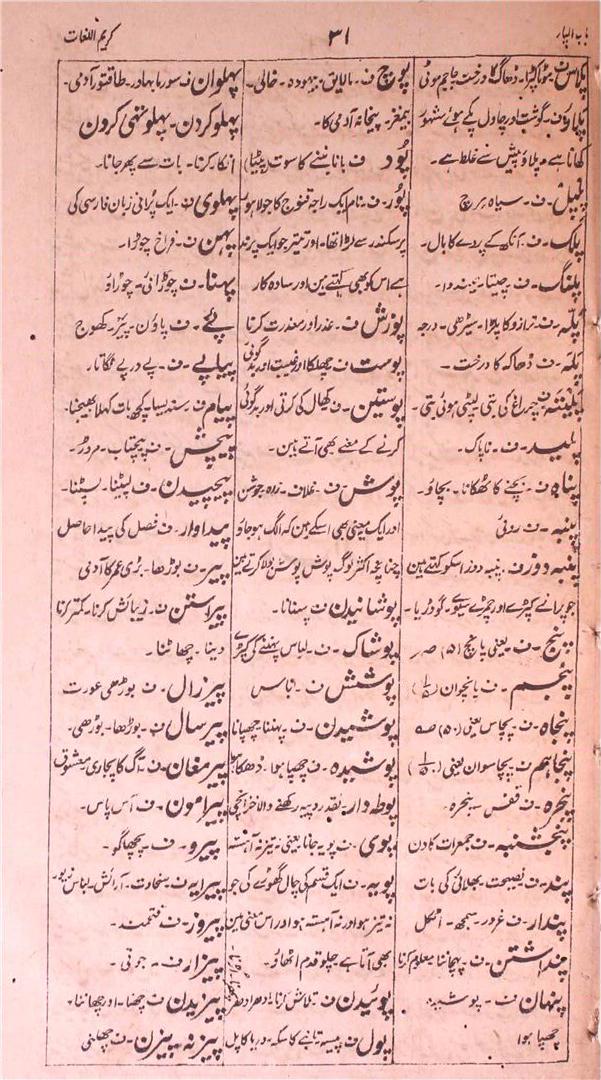 باب الپار
۳۱
کریم اللغات
پلاس ف۔ ٹوٹا کپڑا۔ ڈھاک کا درخت
پلاؤ ف۔ گوشت اور چاول پکے ہوئے مشہور
کھانا ہے۔ پلاؤ پیش سے غلط ہے۔
پلپل۔ ف۔ سیاہ مرچ
پلک۔ ف۔ آنکھ کے پردے کا بال۔
پلنگ۔ ف۔ چیتا۔ تیندوا۔
پلہ۔ ف۔ ترازو کا پلڑا۔ سیڑھی۔ درجہ
پلہ۔ ف۔ ڈھاکہ کا درخت۔
پلیتہ ف۔ چراغ کی بتی لپٹی ہوئی بتی۔
پلید۔ ف۔ ناپاک۔
پناہ ف۔ بچنے کا ٹھکانا۔ بچاؤ۔
پنبہ۔ ف۔ روئی
پنبہ دوز ف۔ پنبہ دوز اسکو کہتے ہین
جو پرانے کپڑے اور چمڑے سیوے۔ گودڑیا۔
پنج۔ ف۔ یعنی پانچ (۵)
پنجم۔ ف۔ پانچوان
پنجاہ۔ ف۔ پچاس یعنی (۵۰)
پنجاہم ف۔ پچاسوان یعنی
پنجرہ۔ ف۔ قفس۔ پنجرہ۔
پنجشنبہ۔ ف۔ جمعرات کا دن
پند۔ ف۔ نصیحت۔ بھلائی کی بات
پندار۔ ف۔ غرور۔ سمجھ۔ اٹکل
پنداشتن۔ ف۔ پہچاننا معلوم کرنا
پنہان ف۔ پوشیدہ
چھپا ہوا
پوچ ف۔ نالایق۔ بیہودہ۔ خالی۔
بیمغز۔
پود ف۔ بانا بننے کا سوت (پیٹا)
پور۔ ف۔ نام ایک راجہ قنوج کا جو لاہور
پر سکندر سے لڑا تھا۔ اور تیتر جو ایک پرند
ہے اس کو بھی کہتے ہین اور سادہ کار
پوزش ف۔ عذر اور معذرت کرنا
پوست ف۔ چھلکا اور غیبت اور بدگوئی
پوستین۔ ف۔ کھال کی کرتی اور بدگوئی
کرنے کے معنے بھی آتے ہین۔
پوش۔ ف۔ غلاف۔ زرہ جوشن
اور ایک معنی بھی اسکے ہین کہ الگ ہو جاؤ
چنانچہ اکثر لوگ پوش پوش بولا کرتے ہین
پوشانیدن۔ ف۔ پہنانا۔
پوشاک۔ ف۔ لباس پہننے کی کپڑے
پوشش ف۔ لباس
پوشیدن۔ ف۔ پہننا چھپانا
پوشیدہ۔ ف۔ چھپا ہوا۔ ڈھکا ہوا
پوطہ دار۔ نقد روپیہ رکھنے والا خزانچی
پوی۔ ف۔ پویہ جانا یعنی نہ تیز نہ آہستہ
پویہ۔ ف۔ ایک قسم کی چال گھوڑے کی جو
نہ تیز ہو اور نہ آہستہ ہو اور اس معنی مین
بھی آتا ہے چلو قدم اٹھاؤ۔
پوئیدن ف۔ تلاش کرنا۔ ادھر ادھر
پول ف۔ پیسہ تانبے کا سکہ۔ دریا کا پل
پہلوان ف۔ سورما بہادر۔ طاقتور آدمی۔
پہلو کردن۔ پہلو تہی کردن
انکار کرنا۔ بات سے پھر جانا۔
پہلوی ف۔ ایک پرانی زبان فارسی کی
پہن۔ ف۔ فراخ چوڑا۔
پہنا۔ ف۔ چوڑائی۔ چوڑاؤ
پئے۔ ف۔ پاؤن۔ پیر۔ کھوج
پیاپے۔ ف۔ پے در پے لگاتار۔
پیام ف۔ سندیسا۔ کچھ بات کہلا بھیجنا۔
پیچش۔ ف۔ پیچتاب۔ مروڑ۔
پیچیدن۔ ف۔ لپیٹنا۔ لپٹنا۔
پیداوار۔ ف۔ فصل کی پیدا حاصل
پیر۔ ف۔ بوڑھا۔ بڑی عمر کا آدمی
پیراستن ف۔ زیبائش کرنا۔ کمتر کرنا
دینا۔ چھانٹنا۔
پیرزال۔ ف۔ بوڑھی عورت
پیرسال ف۔ بوڑھا۔ بوڑھی۔
پیرمغان۔ ف۔ آگ کا پجاری۔ معشوق
پیرامون۔ ف۔ آس پاس۔
پیرو۔ ف۔ پچھلگو۔
پیرایہ ف۔ سخاوت۔ آرائش۔ لباس زیور۔
پیروز۔ ف۔ فتحمند۔
پیزار ف۔ جوتی۔
پیزیدن ف۔ چھننا۔ اور چھاننا۔
پیزنہ۔ پیزن۔ ف۔ چھلنی